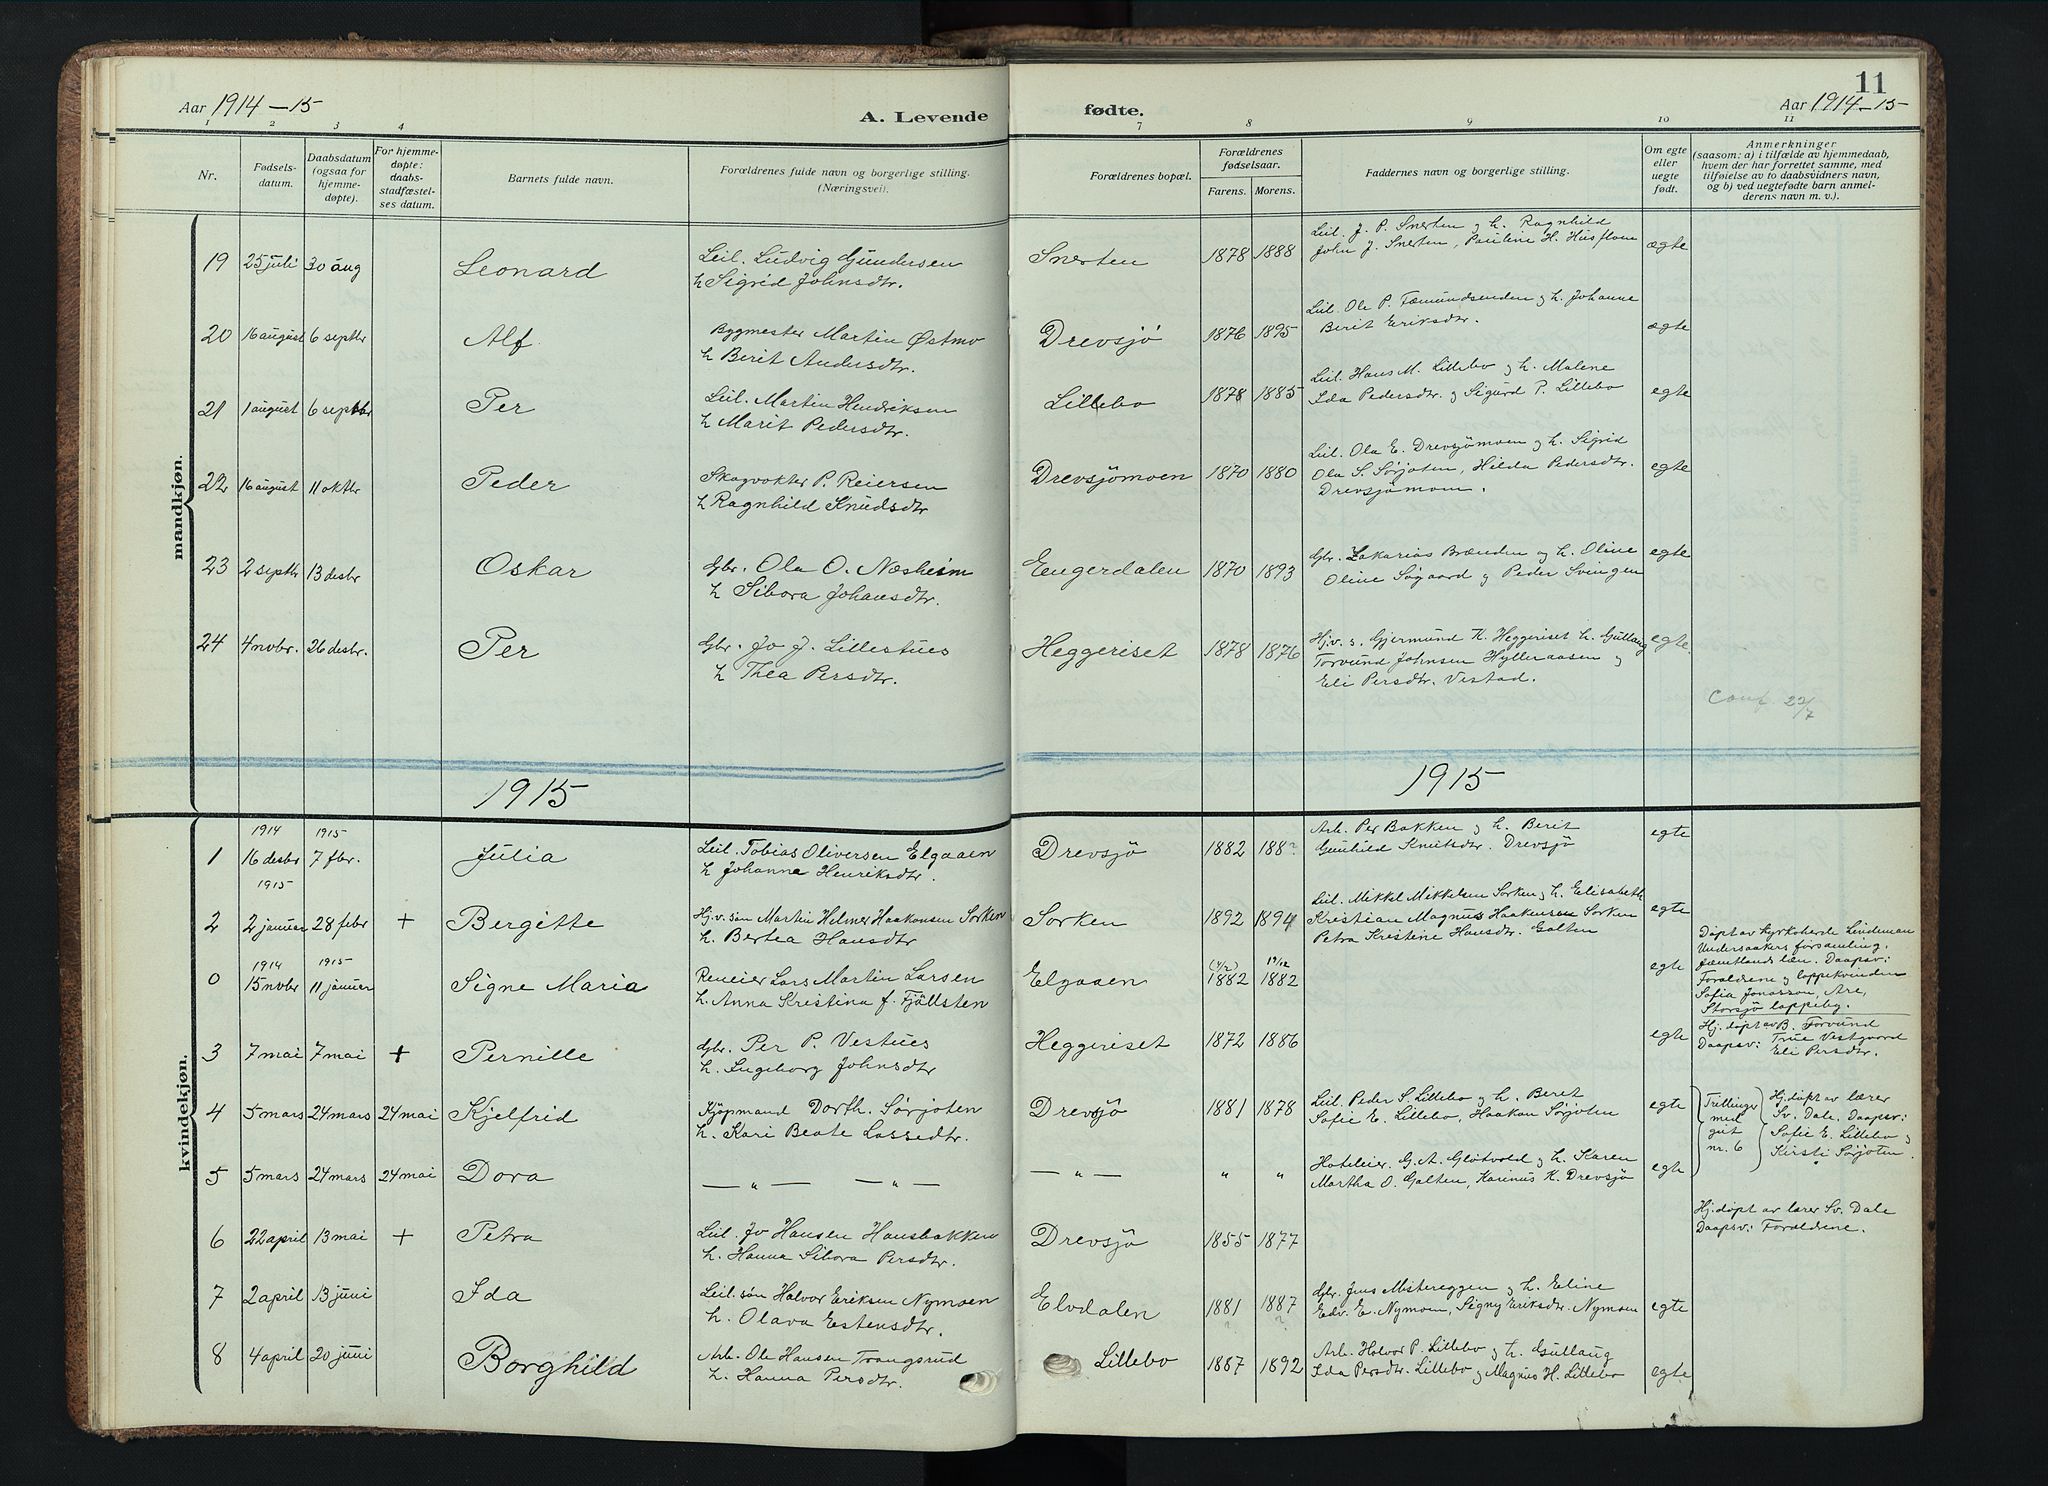 Aar 1914-15
A. Levende
fødte.
11
Aar 1914-15
1 2 3 4 7 8 9 10 11
Nr.
Fødsels-
datum.
Daabsdatum
(ogsaa for
hjemme-
døpte).
For hjemme-
døpte:
daabs-
stadfæstel-
ses datum.
Barnets fulde navn.
Forældrenes fulde navn og borgerlige stilling.
(Næringsvei).
Forældrenes bopæl.
Forældrenes
fødselsaar.
Farens. Morens.
Faddernes navn og borgerlige stilling.
Om egte
eller
uegte
født.
Anmerkninger
(saasom: a) i tilfælde av hjemmedaab,
hvem der har forrettet samme, med
tilføielse av to daabsvidners navn,
og b) ved uegtefødte barn anmel-
derens navn m. v.).
mandkjøn.
19 25 juli 30 aug Leonard
Leil. Ludvig Gundersen
h Sigrid Johnsdtr.
Snerten 1878 1888
Leil. J. P. Snerten og h. Ragnhild
John J. Snerten, Pauline H. Husfloen
ægte
20 16 august 6 septbr Alf
Bygmester Martin Østmo
h Berit Andersdtr.
Drevsjö 1876 1895
Leil. Ole P. Fæmundsenden og h. Johanne
Berit Eriksdtr.
ægte
21 1 august 6 septbr Per
Leil. Martin Hendriksen
h Marit Pedersdtr.
Lillebo 1878 1885
Leil. Hans M. Lillebo og h. Malene
Ida Pedersdtr. og Sigurd P. Lillebo
egte
22 16 august 11 oktbr Peder
Skogvokter P. Reiersen
h Ragnhild Knudsdtr
Drevsjömoen 1870 1880
Leil. Ola E. Drevsjömoen og h. Sigrid
Ola S. Sørjoten, Hilda Pedersdtr.
Drevsjömoen.
egte
23 2 septbr 13 desbr Oskar
Gbr. Ola O. Næsheim
h Sibora Johansdtr.
Engerdalen 1870 1893
Gbr. Zakarias Brænden og h. Oline
Oline Søgaard og Peder Svingen
egte
24 4 novbr. 26 desbr. Per
Gbr. Jo J. Lillestues
h Thea Persdtr.
Heggeriset 1878 1876
Hj.v. s. Gjermund K. Heggeriset h. Gullaug
Torvund Johnsen Hylleraasen og
Eli Persdtr. Vestad.
egte.
Conf. 22/7
1915
1915
kvindekjøn.
1914 1915
1 16 desbr 7 fbr. Julia
Leil. Tobias Oliversen Elgaaen
h Johanna Henriksdtr.
Drevsjö 1882 188?
Arb. Per Bakken og h. Berit
Gunhild Knutsdtr. Drevsjö
egte
1915
2 2 januar 28 febr + Bergitte
Hj.v. søn Martin Helmer Haakonsen Sorken
h. Bertea Hansdtr
Sorken 1892 1894
Leil. Mikkel Mikkelsen Sorken og h. Elisabeth
Kristian Magnus Haakensen Sorken
Petra Kristine Hansdtr. Galten
egte
1914 1915
0 15 novbr 11 januar Signe Maria
Reneier Lars Martin Larsen
h. Anna Kristina f. Fjällsten
Elgaaen (4/2) 1882 19/12 1882
egte
Døpt av Kyrkoherde Lindeman
Undersaakers församling.
Jæmtlands læn. Daapsv:
Foraldrene og lappekvinden
Sofia Jonasson, Are,
Storsjø lappeby.
3 7 mai 7 mai + Pernille
Gbr. Per P. Vestues
h. Ingeborg Johnsdtr
Heggeriset 1872 1886
egte
Hj. døpt av B. Torvund
Daapsv: True Vestgaard
Eli Persdtr.
4 5 mars 24 mars 24 mai Kjelfrid
Kjöpmand Dorth. Sørjoten
h. Kari Beate Lassedtr.
Drevsjö 1881 1878
Leil. Peder S. Lillebo og h. Berit
Sofie E. Lillebo, Haakon Sørjoten
egte
Trillinger
med
gut
nr. 6
Hj. døpt av lærer
Sv. Dale. Daapsv:
Sofie E. Lillebo og
Kirsti Sørjoten.
5 5 mars 24 mars 24 mai Dora
— „ — — „ —
— „ — „ „
Hoteleier. G. A. Gløtvold og h. Karen
Martha O. Galten, Karinus K. Drevsjö
egte
6 22 april 13 mai + Petra
Leil. Jo Hansen Hansbakken
h. Hanna Sibora Persdtr.
Drevsjö 1855 1877
Hj. døpt av lærer Sv. Dale
Daapsv: Foraldrene.
7 2 april 13 juni Ida
Leil. søn Halvor Eriksen Nymoen
h. Olava Estensdtr.
Elvdalen 1881 1887
? ?
Gbr. Jens Mistereggen og h. Eline
Edv. E. Nymoen, Signy Eriksdtr. Nymoen
egte
8 4 april 20 juni Borghild
Arb. Ole Hansen Trangsrud
h. Hanna Persdtr.
Lillebo 1887 1892
Arb. Halvor P. Lillebo og h. Gullaug
Ida Persdtr. Lillebo og Magnus H. Lillebo
egte